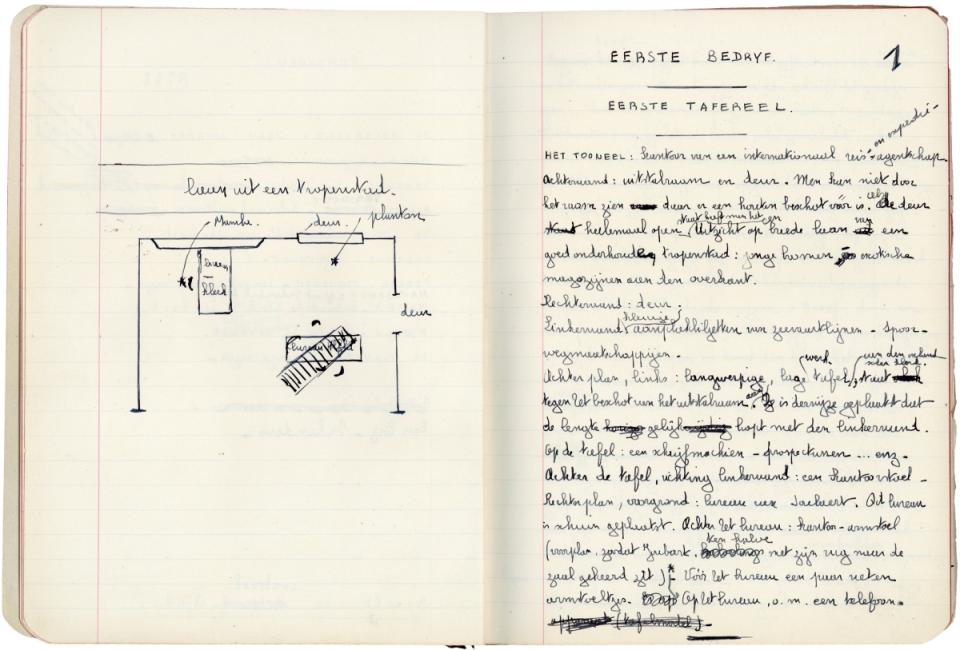 laan uit een tropenstad.
Blanche.
deur.
planton
bureau
klerk
deur
bureau
1
EERSTE BEDRYF.
EERSTE TAFEREEL.
en expeditie-
HET TOONEEL: Kantoor van een internationaal reis- agentschap.
Achterwand: uitstalraam en deur. Men kan niet door
het raam zien daar er een houten beschot vóór is. De deur
staat heelemaal open. Uitzicht op breede laan een
van
goed onderhouden tropenstad: jonge boomen, exotische
magazijnen aan den overkant.
Rechterwand: deur.
kleurige
Linkerwand: aanplakbiljetten van zeevaartlijnen - spoor-
wegmaatschappijen.
werk
Achterplan, links: langwerpige, lage tafel, staat
tegen het beschot van het uitstalraam. is derwijze geplaatst dat
de lengte gelijk loopt met den linkerwand.
Op de tafel: een schrijfmachien - prospectussen ... enz.
Achter de tafel, richting linkerwand: een kantoorstoel.
Rechterplan, voorgrond: bureau van Jackaert. Dit bureau
is schuin geplaatst. Achter het bureau: kantoor-armstoel
ten halve
zoodat met zijn rug naar de
zaal gekeerd zit). Vóór het bureau een paar rieten
armstoeltjes. Op het bureau, o.m. een telefoon-
(tafelmodel).